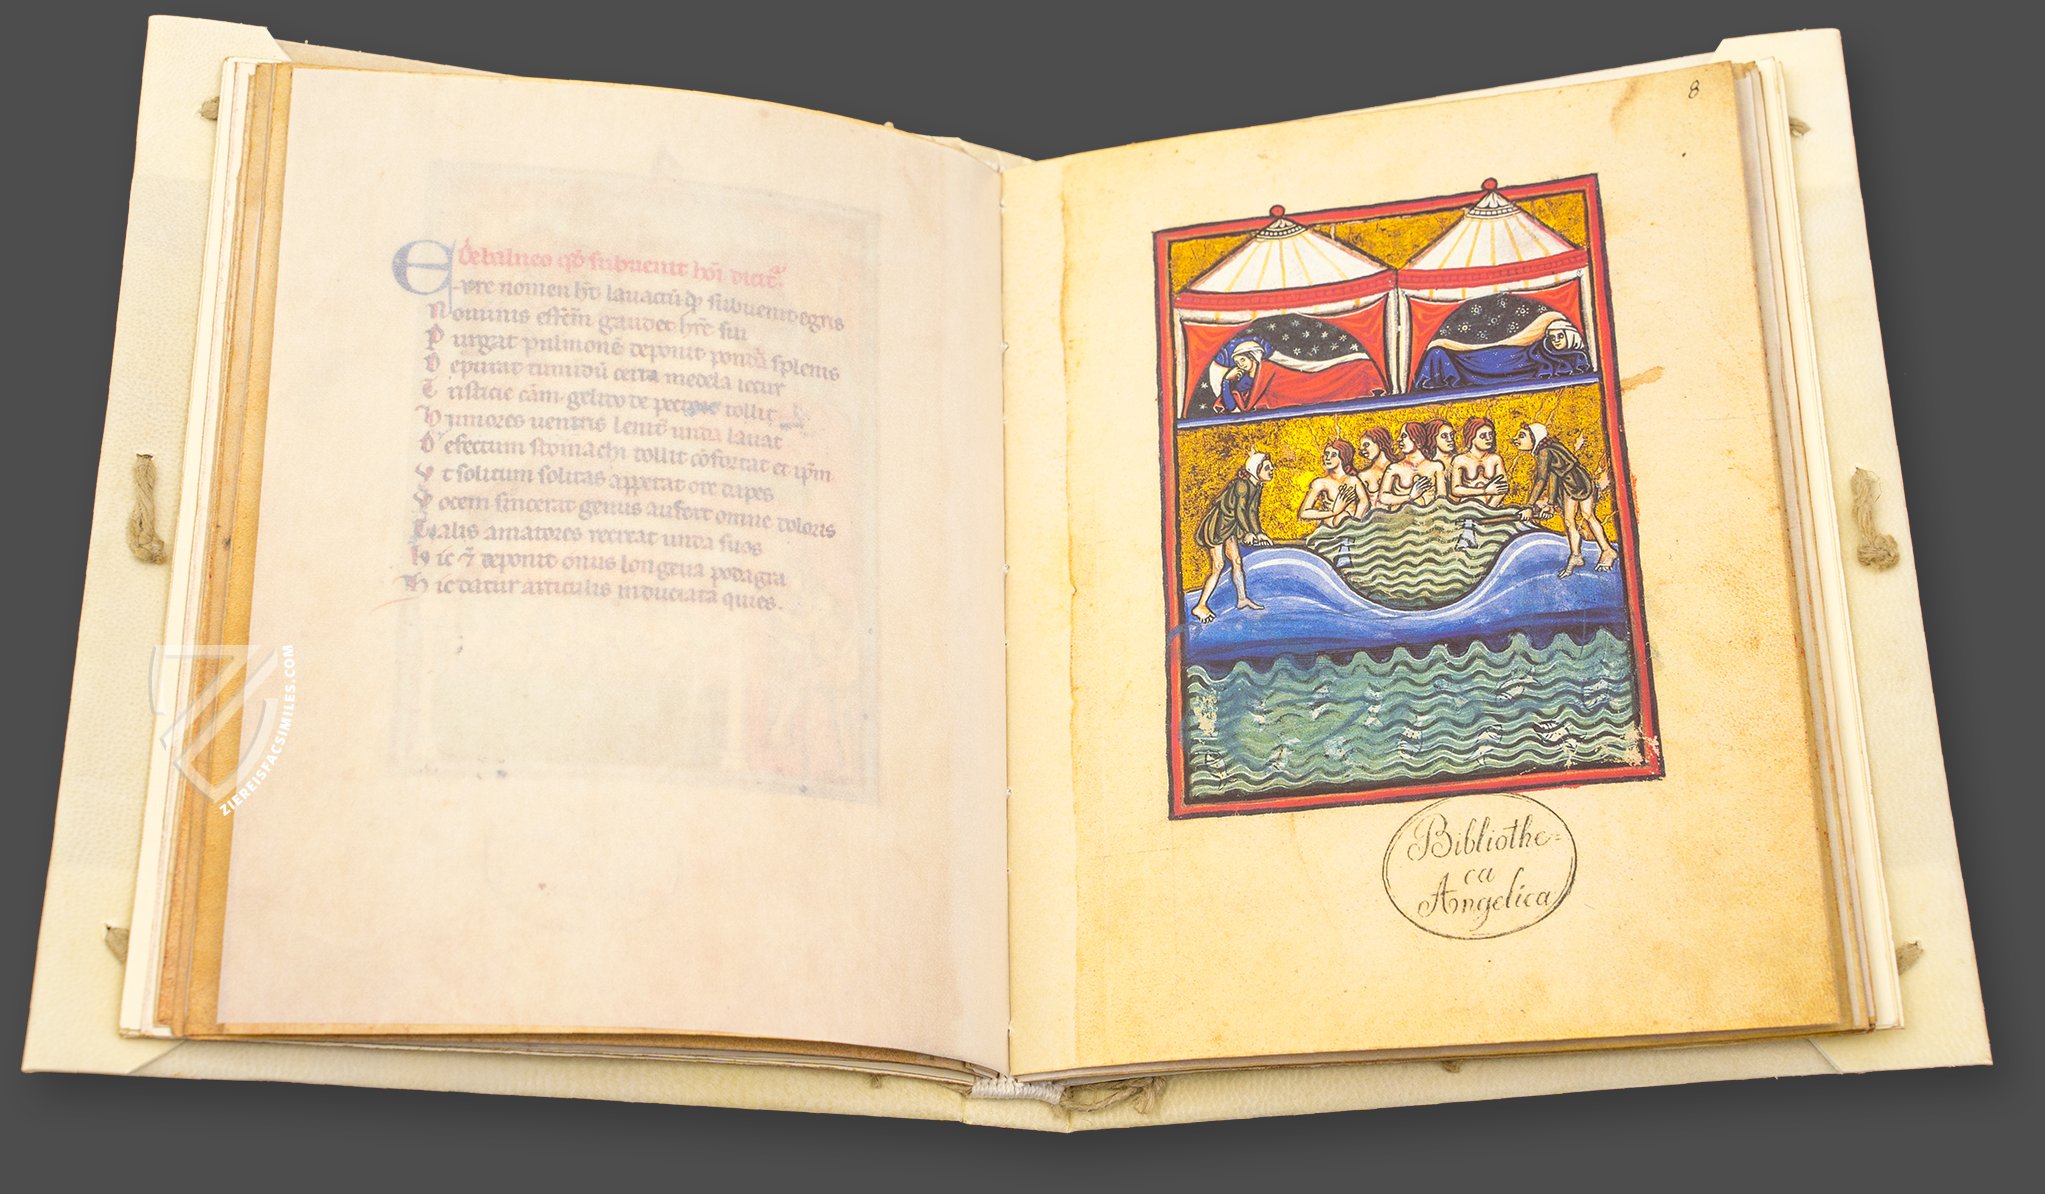 De balneo qd̄ subuenit hōi dicit̄.
Ex re nomen h̄t lauacrū qƺ subuenit egris
Nominis effc̄m gaudet hr̄e sui
Purgat pulmonē deponit pondꝰ splenis
Depurat tumidū certa medela iecur
Tristicie cām gelido de pectore tollit
Humores uentris lenit̄ unda lauat
Defectum stomachi tollit cōfortat et ip̄m
Vt solitum solitas appetat ore dapes
Vocem sincerat genus aufert omne doloris
Talis amatores recreat unda suos
Hic ⁊ deponit onus longeua podagra
Hic datur articulis induciata quies.
8
Bibliothe=
ca
Angelica
ZIEREISFACSIMILES.COM